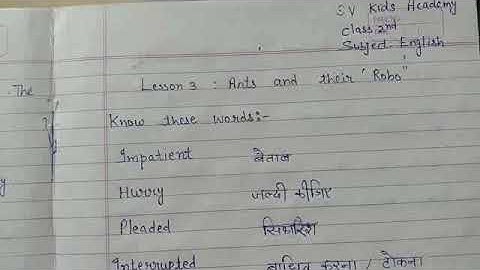 SV Kids Academy
Class 2nd
Subject English
The
Lesson 3 : Ants and their "Robo"
Know these words:-
Impatient बेताब
Hurry जल्दी कीजिए
Pleaded सिफारिश
Interrupted बाधित करना / टोकना